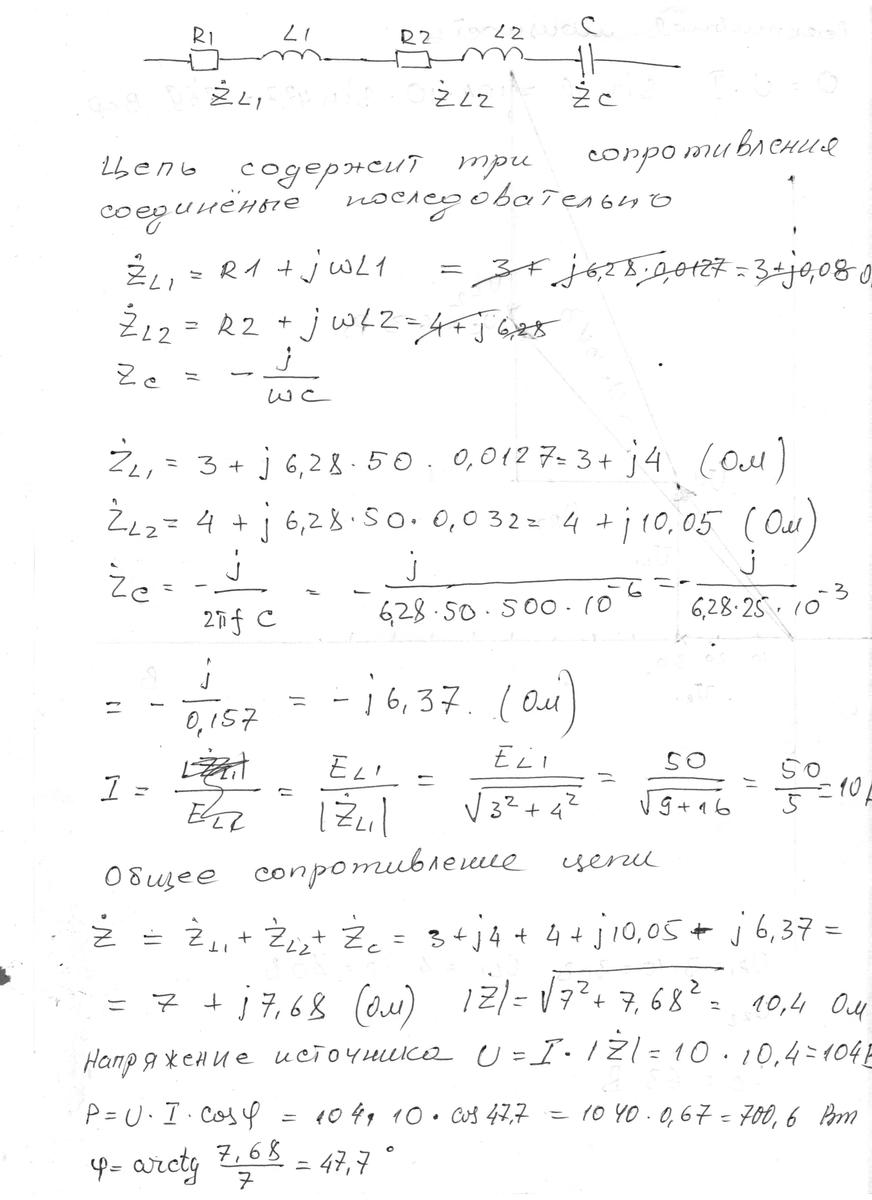 R1 L1 R2 L2 C
Ż_L1 Ż_L2 Ż_C
Цепь содержит три сопротивления
соединёные последовательно
Ż_L1 = R1 + jωL1 = 3 + j6,28·0,0127 = 3+j0,08
Ż_L2 = R2 + jωL2 = 4 + j6,28
Z_C = - j/ωC
Ż_L1 = 3 + j 6,28 · 50 · 0,0127 = 3 + j4 (Ом)
Ż_L2 = 4 + j 6,28 · 50 · 0,032 = 4 + j10,05 (Ом)
Ż_C = - j/2πfC = - j/6,28·50·500·10^-6 = - j/6,28·25·10^-3
= - j/0,157 = - j6,37. (Ом)
I = E_L1/|Ż_L1| = E_L1/√3²+4² = 50/√9+16 = 50/5 = 10
Общее сопротивление цепи
Ż = Ż_L1 + Ż_L2 + Ż_C = 3 + j4 + 4 + j10,05 - j6,37 =
= 7 + j7,68 (Ом) |Ż| = √7² + 7,68² = 10,4 Ом
Напряжение источника U = I · |Ż| = 10 · 10,4 = 104В
P = U · I · cosφ = 104 · 10 · cos 47,7 = 1040 · 0,67 = 700,6 Вт
φ = arctg 7,68/7 = 47,7°